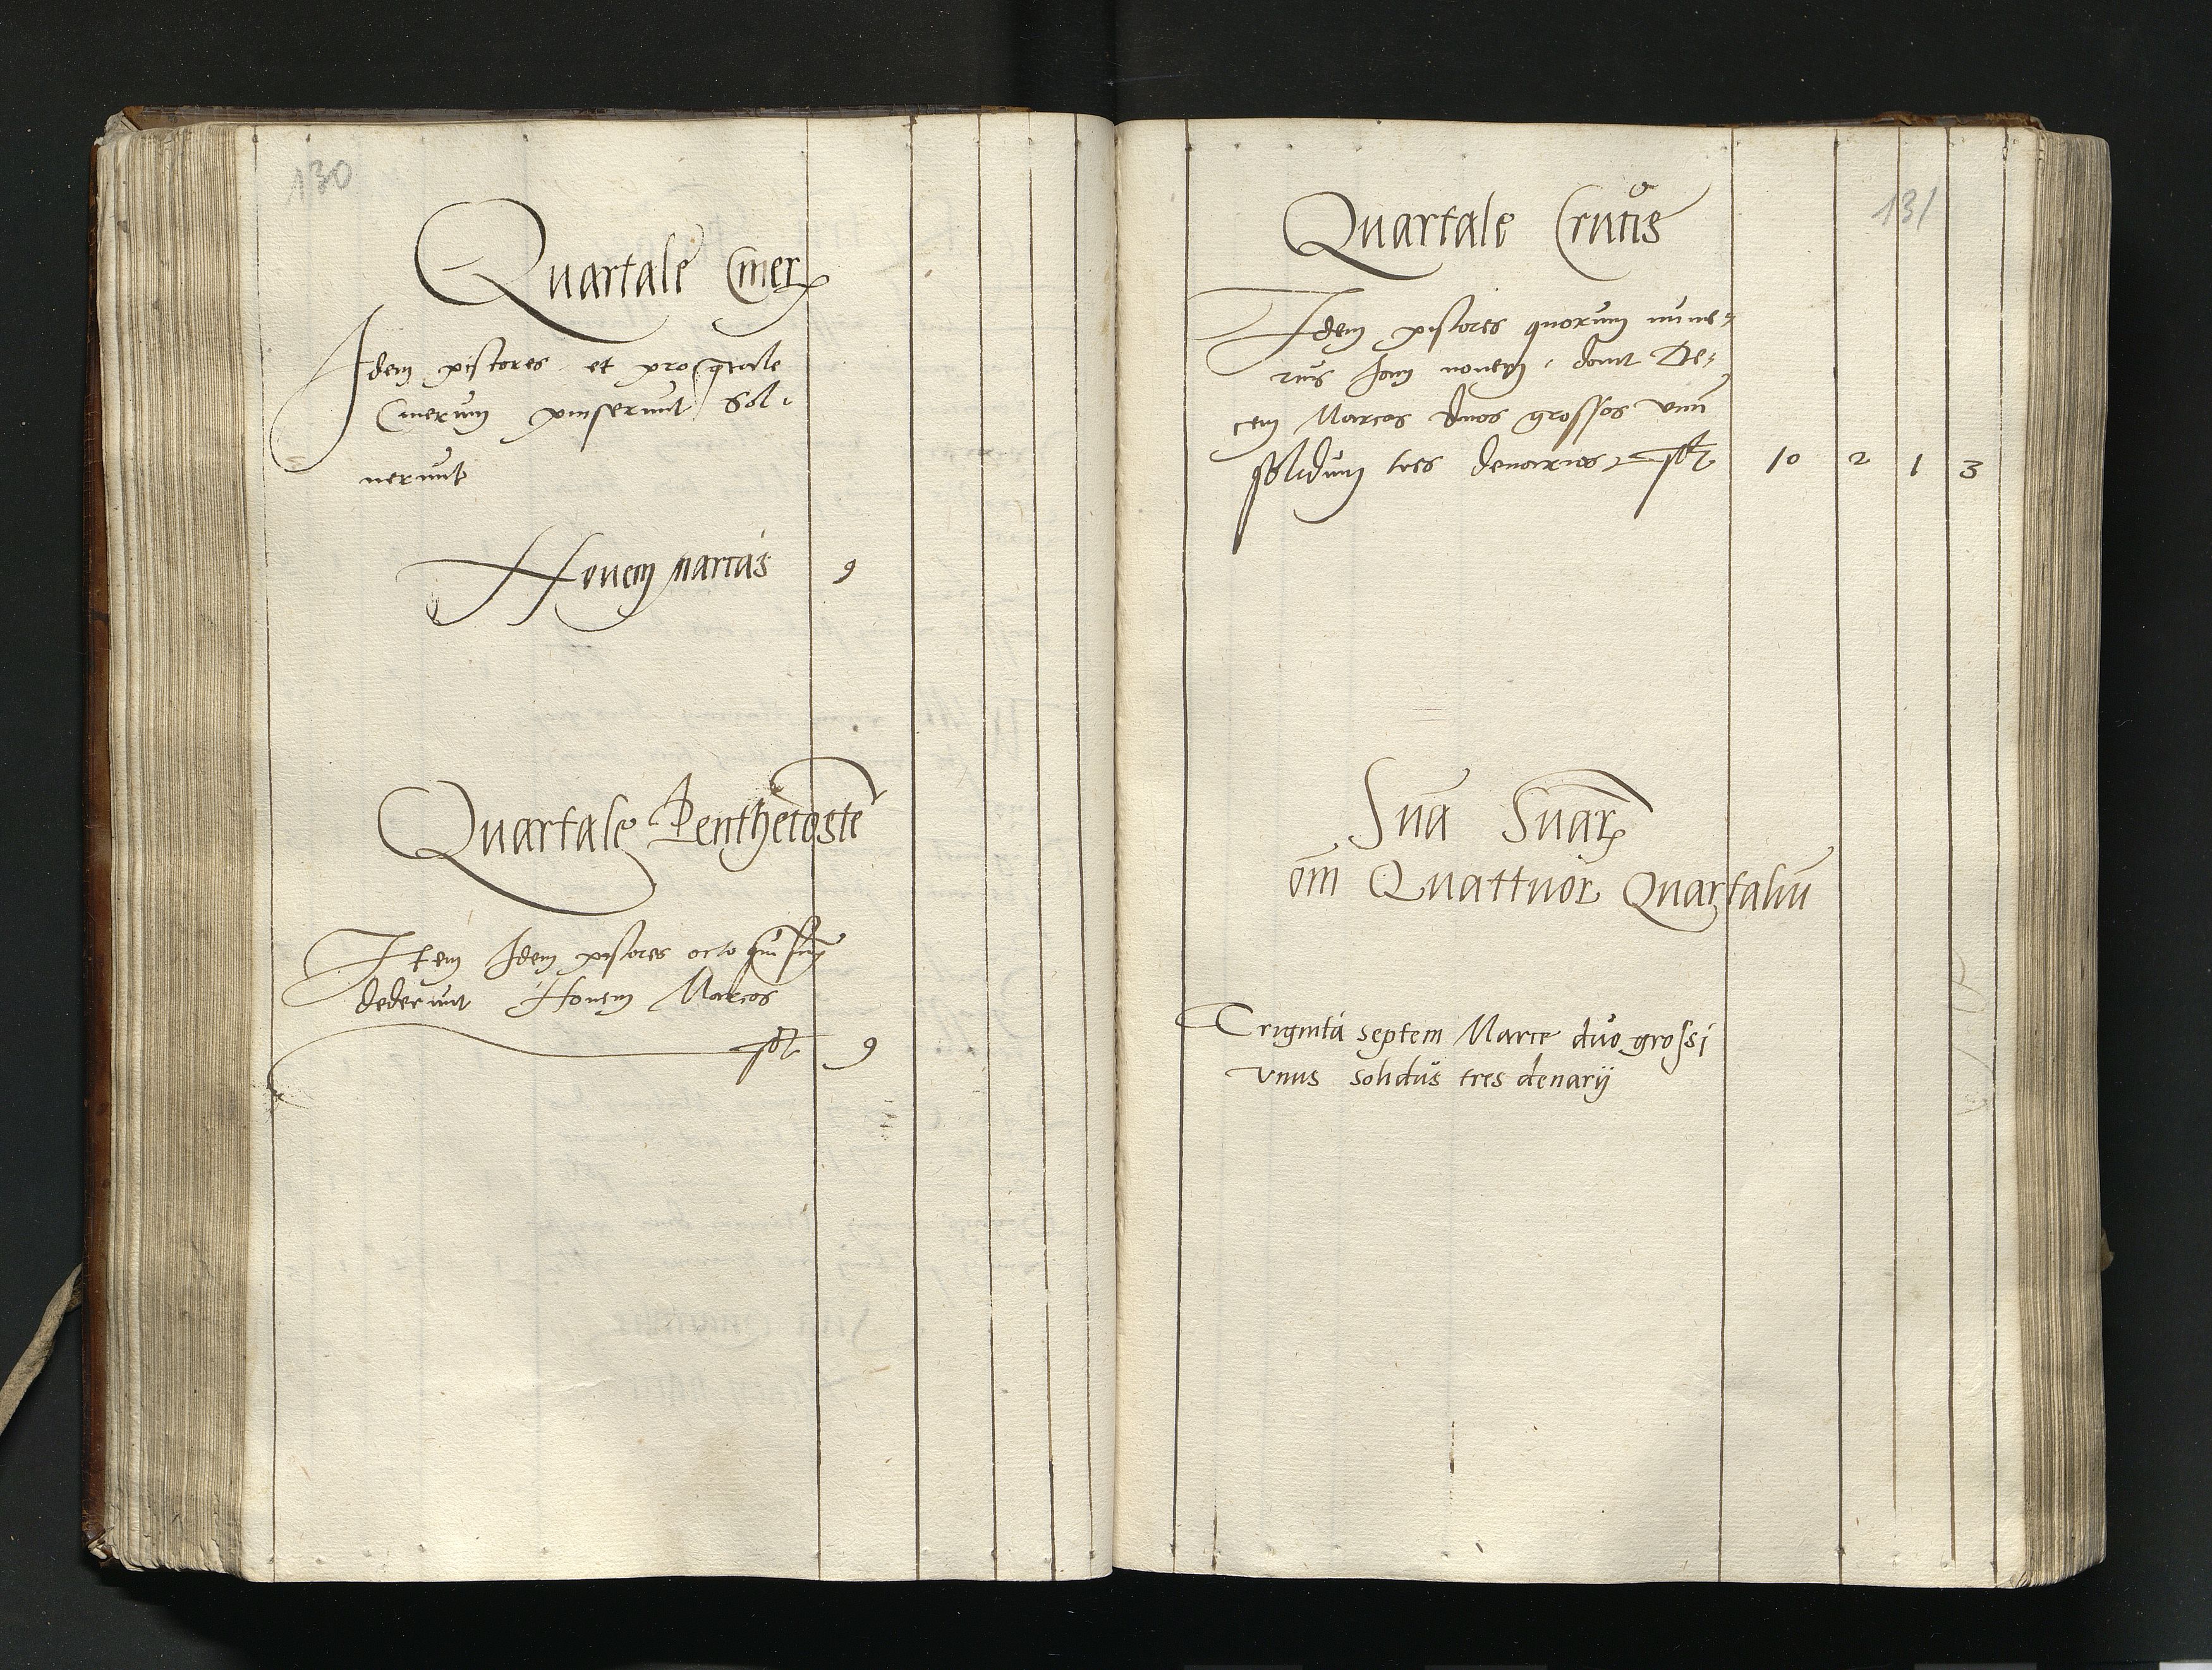 130
Quartale Cinerꝝ
Idem pistores et pro qrtale
Cinerum pinserunt Sol-
uerunt
Nouem marcas 9
Quartale Penthecoste
Item Idem pistores octo
dederunt Nouem Marcas
fct 9
131
Quartale Crucis
Idem pistores quorum nume-
rus Iam nouem, dant De-
cem Marcas duos grossos vnũ
solidum tres denarios fct 10 2 1 3
Sũa Sũarꝝ
oĩm Quattuor Quartaliũ
Triginta septem Marce duo grossi
vnus solidus tres denarij